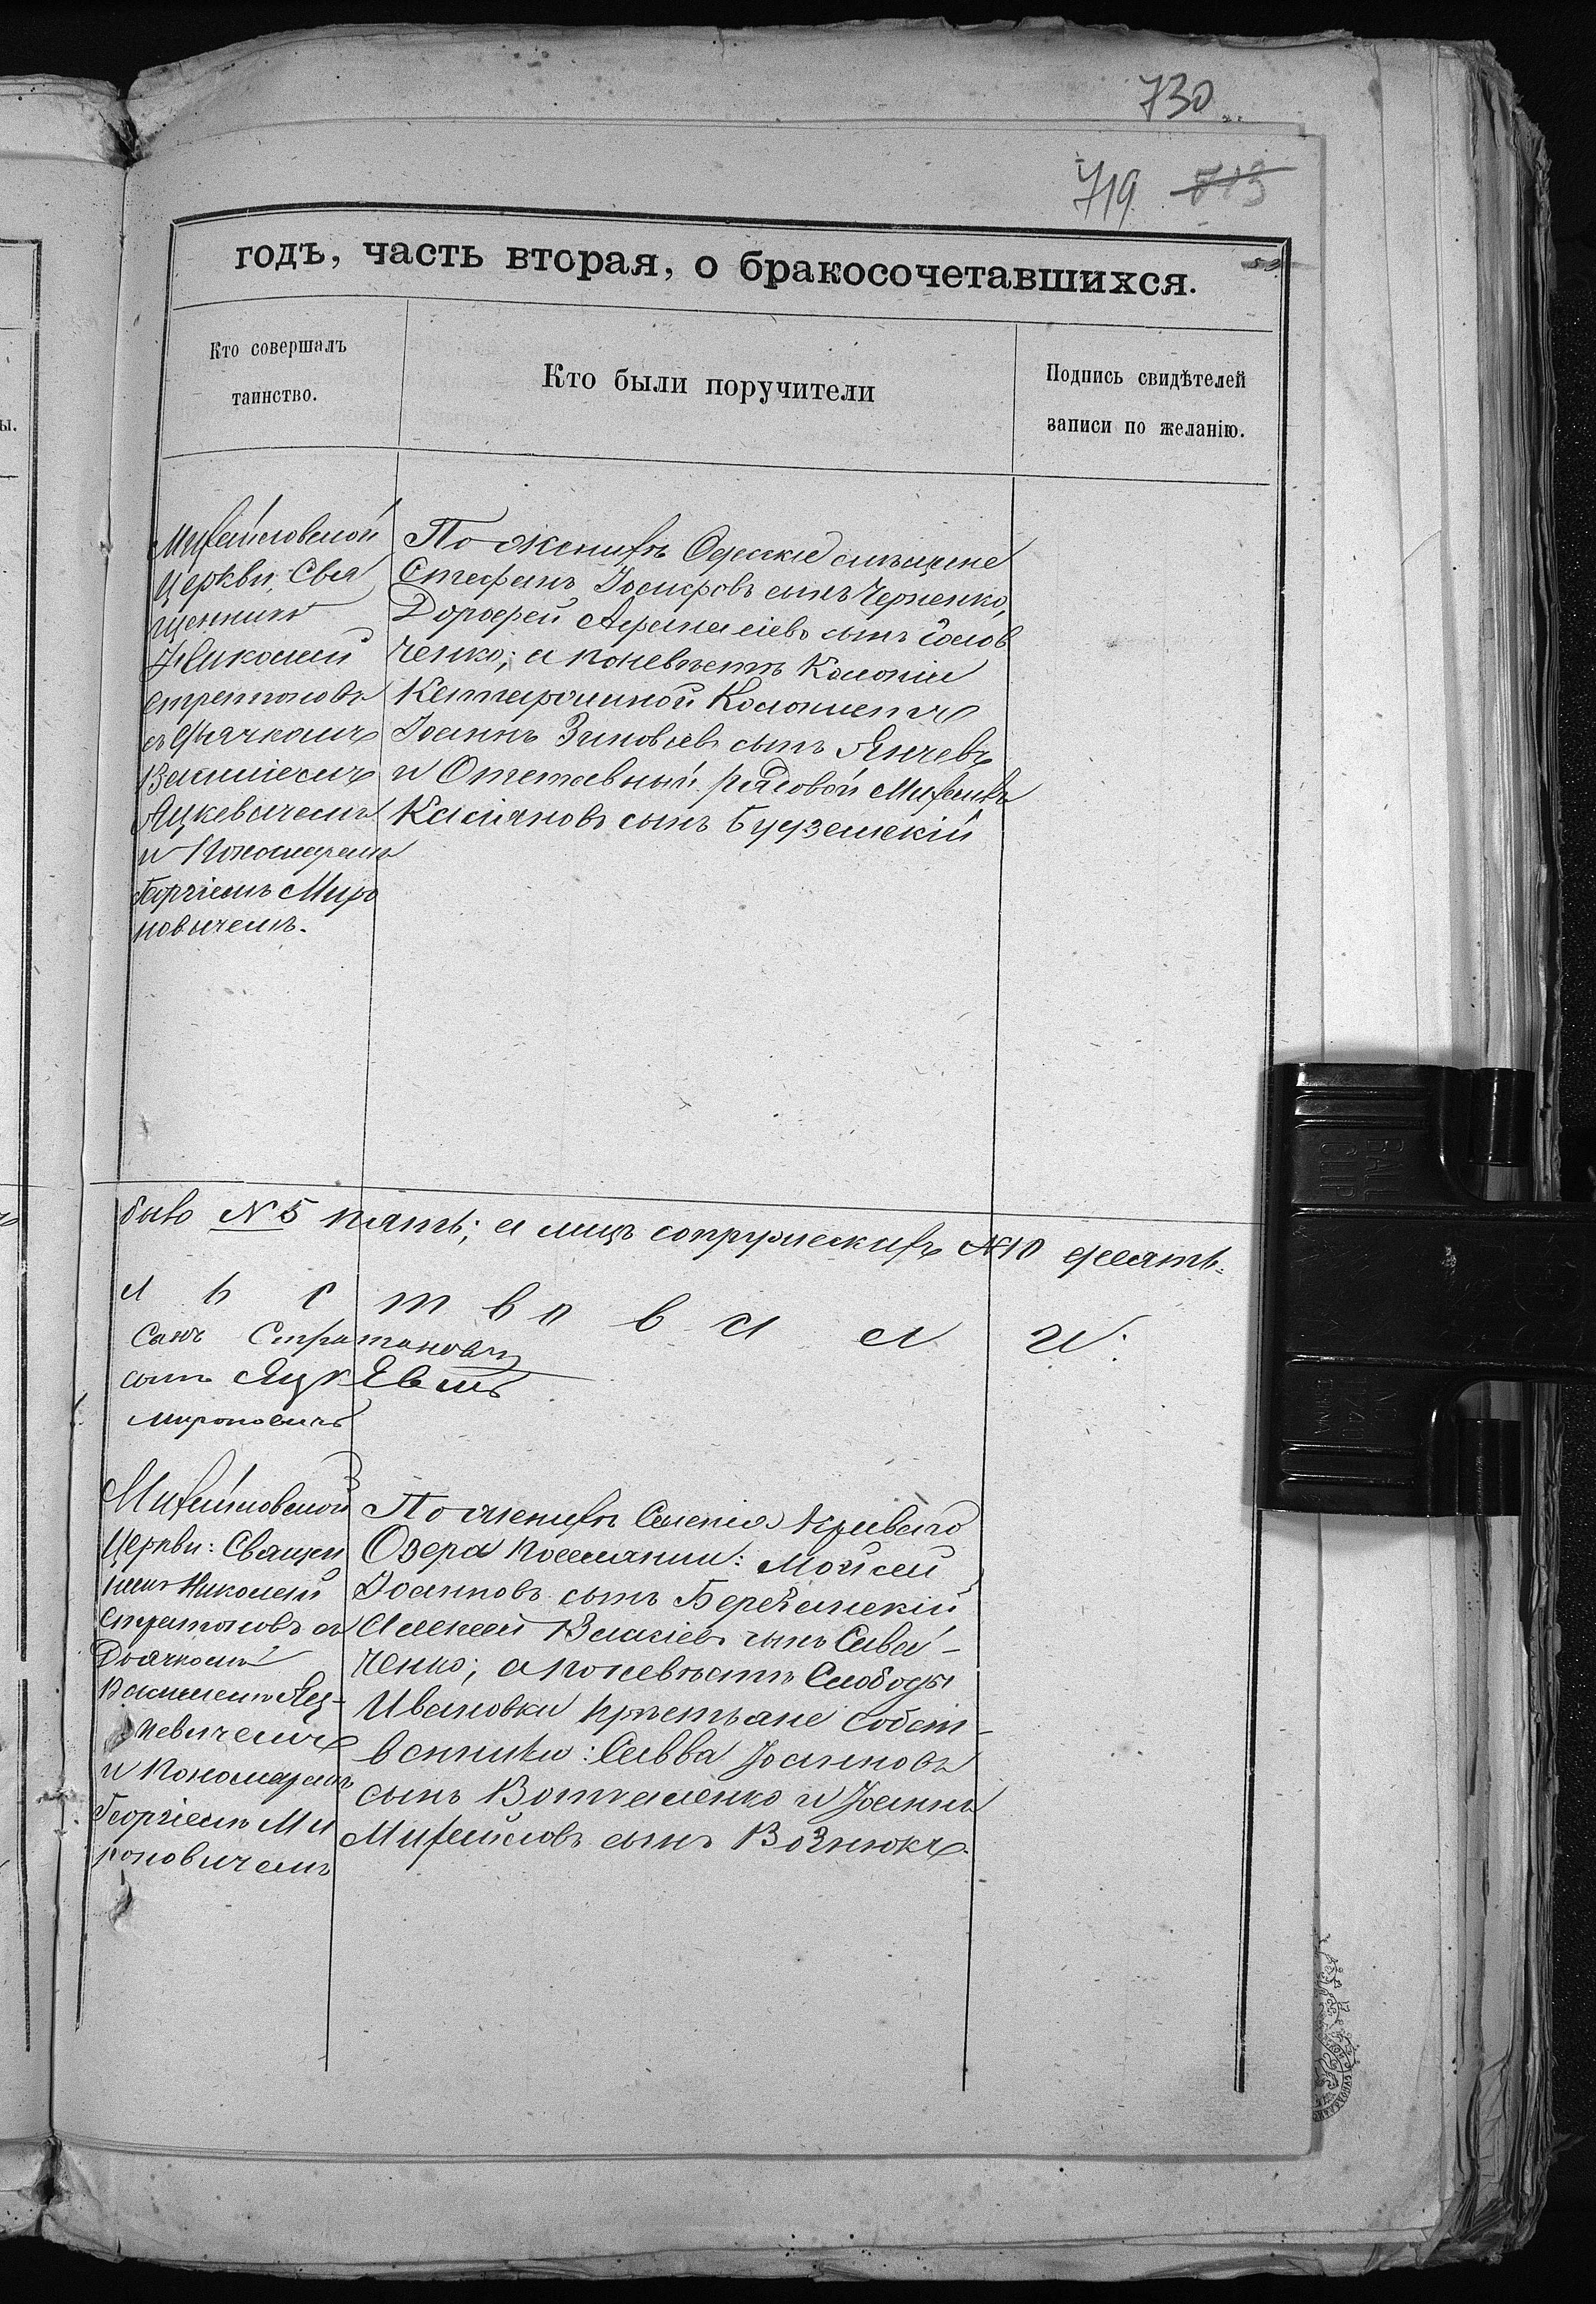 730
719 713
годъ, часть вторая, о бракосочетавшихся.
Кто совершалъ
таинство.
Кто были поручители
Подпись свидѣтелей
записи по желанію.
ы.
Михайловской
Церкви, Свя
щенникъ
Николай
Стратоновъ
съ Дьячкомъ
Василіемъ
Яцкевичемъ
и Пономаремъ
Георгіемъ Миро
новичемъ.
По женихѣ Одесскіе мѣщане
Стефанъ Іосифовъ сынъ Черненко,
Дорофей Афанасіевъ сынъ Голов
ченко; а поневѣстѣ Колоніи
Катаржиной Колонистъ
Іоаннъ Зиновіевъ сынъ Янчевъ
и Отставный рядовой Михаилъ
Касіяновъ сынъ Будземскій
было № 5 пять; а лицъ сопружескихъ № 10 десять.
л ь с т в о в а л и.
Стратоновъ
сынъ Яцкевичъ
Мироновичъ
Михайловской
Церкви: Священ
никъ Николай
Стратоновъ съ
Дьячкомъ
Василіемъ Яц-
кевичемъ
и Пономаремъ
Георгіемъ Ми
роновичемъ
По женихѣ Селенія Криваго
Озера поселянии: Мойсей
Іоанновъ сынъ Бережанскій,
Алексей Власіевъ сынъ Савч-
ченко; а поневѣстѣ Слободы
Ивановки крестьяне собст-
венники: Савва Іоанновъ
сынъ Воткаленко и Іоаннъ
Михайловъ сынъ Вознюкъ.
BALL
CLIP